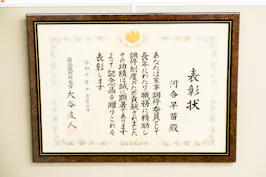 表彰状
河合早苗殿
あなたは家事調停委員として
長年にわたり職務に精励し
調停制度のため貢献されました
その功績は誠に顕著であります
よって記念品を贈りこれを
表彰します
最高裁判所長官
大谷直人